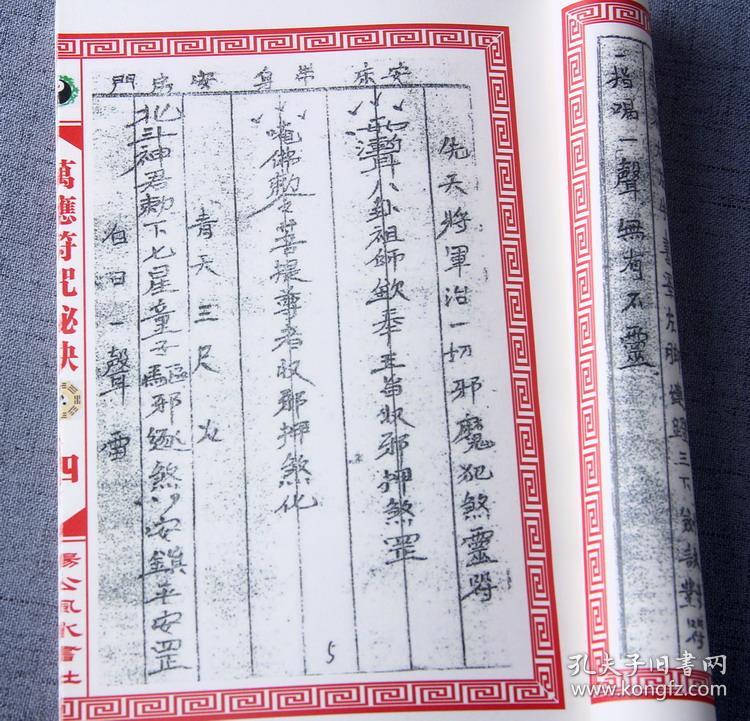 一指喝一聲無有不靈
先天將軍治一切邪魔犯煞靈符
八卦祖師欽奉玉旨收邪押煞罡
唵佛勅令菩提尊者收邪押煞化
青天三尺火
北斗神君勅下七星童子驅邪逐煞安鎮平安罡
白日一聲雷
安床 帶身 安房門
5
萬應符咒秘訣
四
楊公風水書社
孔夫子旧书网
www.kongfz.com